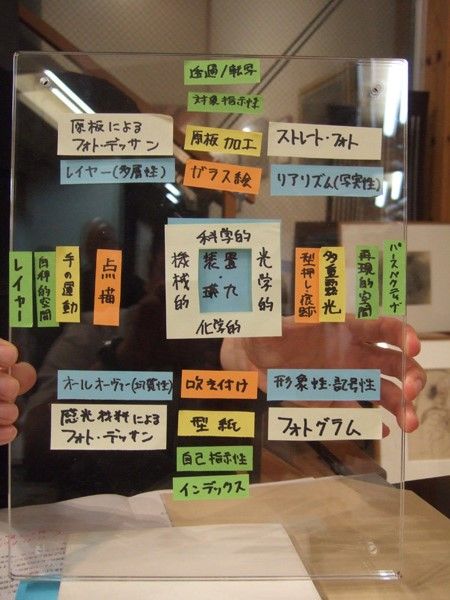 透過/転写
対象指示性
原板による
フォト・デッサン
原板加工
ストレート・フォト
レイヤー(多層性)
ガラス絵
リアリズム(写実性)
レイヤー
自律的空間
手の運動
点描
科学的
機械的
装置・瑛九
光学的
化学的
型押し・痕跡
多重露光
再現的空間
パースペクティヴ
オールオーヴァー(均質性)
吹き付け
形象性・記号性
感光材料による
フォト・デッサン
型紙
フォトグラム
自己指示性
インデックス